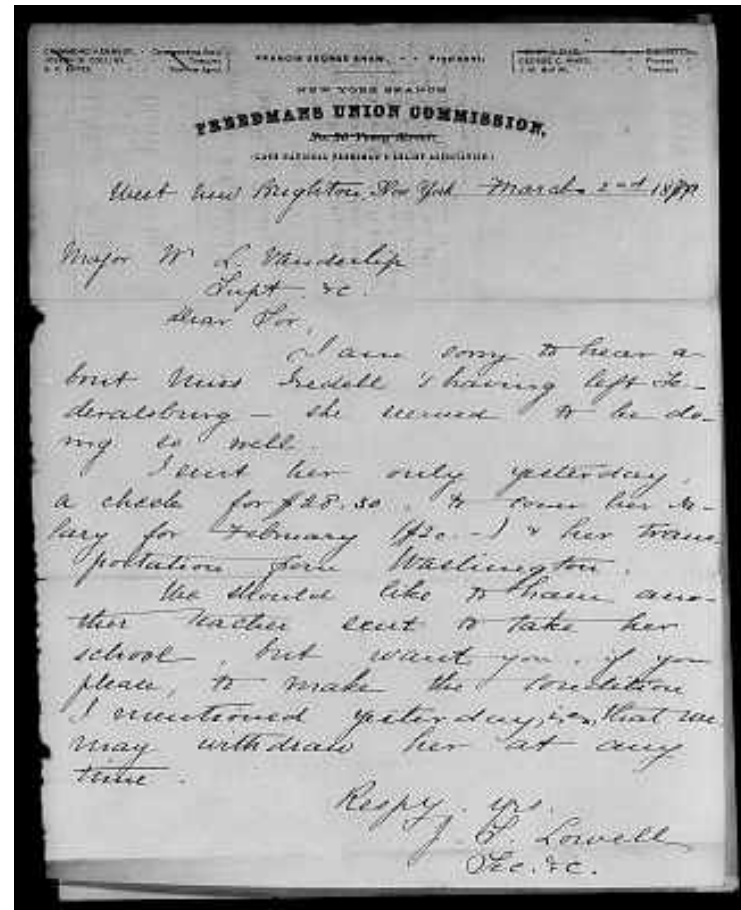 FRANCIS GEORGE SHAW, - - President.
NEW YORK BRANCH
FREEDMANS UNION COMMISSION,
No. 30 Vesey Street.
(LATE NATIONAL FREEDMAN'S RELIEF ASSOCIATION)
West New Brighton, New York March 2nd
Major W. L. Vanderlip
Supt. &c.
Dear Sir,
I am sorry to hear a-
bout Miss Iredell's having left Fe-
deralsburg - she seemed to be do-
ing so well.
I sent her only yesterday,
a check for $28.30, to cover her sa-
lary for February ($20.-) & her trans-
portation from Washington.
We should like to have ano-
ther teacher sent to take her
school, but want you, if you
please, to make the condition
I mentioned yesterday, i.e., that we
may withdraw her at any
time.
Respy. yrs.
J. S. Lowell
Sec. &c.